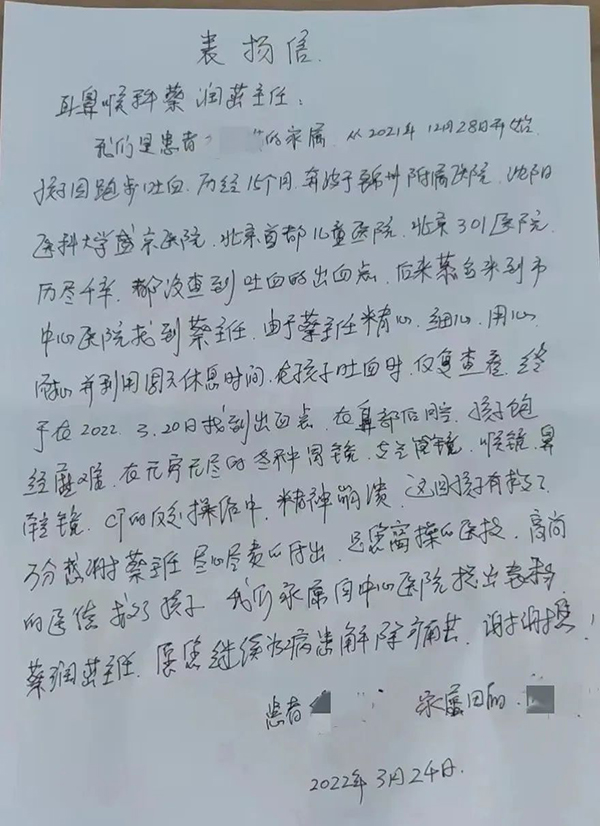 表扬信.
耳鼻喉科蔡润茁主任:
我们是患者 的家属,从2021年12月28日开始
孩子因跑步吐血.历经15个月.奔波于锦州附属医院.沈阳
医科大学盛京医院.北京首都儿童医院.北京301医院.
历尽千辛.都没查到吐血的出血点.后来慕名来到市
中心医院找到蔡主任.由于蔡主任精心.细心.用心.
耐心并利用周天休息时间.在孩子吐血时.反复查看.终
于在2022.3.20日找到出血点.在鼻部后 .孩子饱
经磨难.在无穷无尽的各种胃镜.支气管镜.喉镜.鼻
镜.CT的反复操作中.精神崩溃.这回孩子有救了.
万分感谢蔡主任尽心尽责的付出.是您高操的医技.高尚
的医德救了孩子.我们家属向中心医院提出表扬
蔡润茁主任.愿您继续为病患解除痛苦.谢谢您!
患者 家属
2022年3月24日.